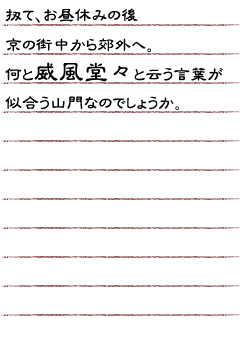 扨て、お昼休みの後
京の街中から郊外へ。
何と威風堂々と云う言葉が
似合う山門なのでしょうか。